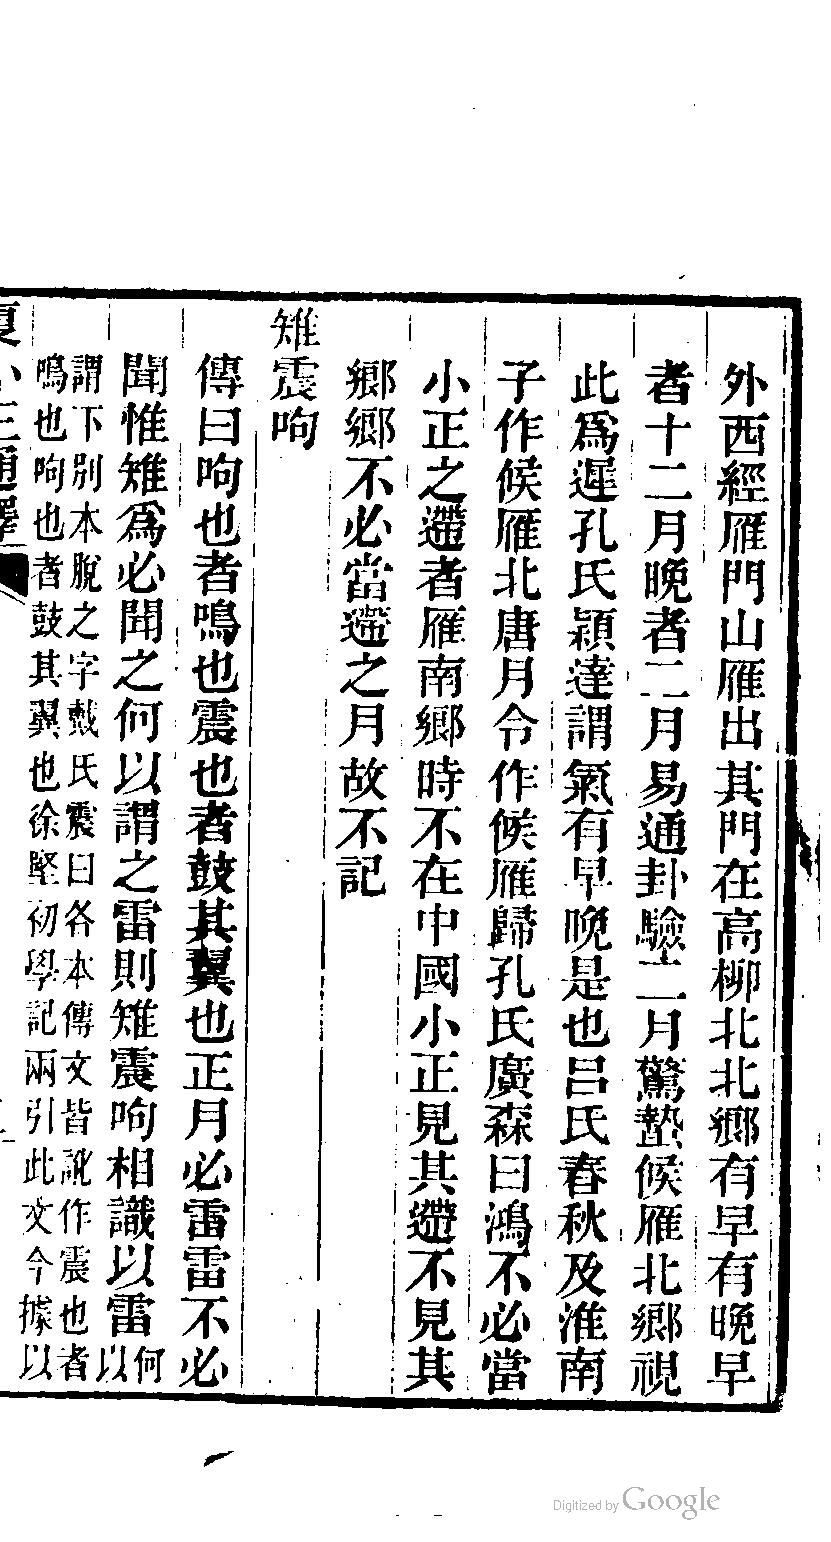 外西經雁門山雁出其門在高柳北北鄉有早有晚早
者十二月晚者二月易通卦驗二月驚蟄候雁北鄉視
此爲遲孔氏穎達謂氣有早晚是也呂氏春秋及淮南
子作候雁北唐月令作候雁歸孔氏廣森曰鴻不必當
小正之遰者雁南鄉時不在中國小正見其遰不見其
鄉鄉不必當遰之月故不記
雉震呴
傳曰呴也者鳴也震也者鼓其翼也正月必雷雷不必
聞惟雉爲必聞之何以謂之雷則雉震呴相識以雷何
以
謂下別本脫之字戴氏震曰各本傳文皆訛作震也者
鳴也呴也者鼓其翼也徐堅初學記兩引此文今據以
夏小正通釋
Digitized by Google